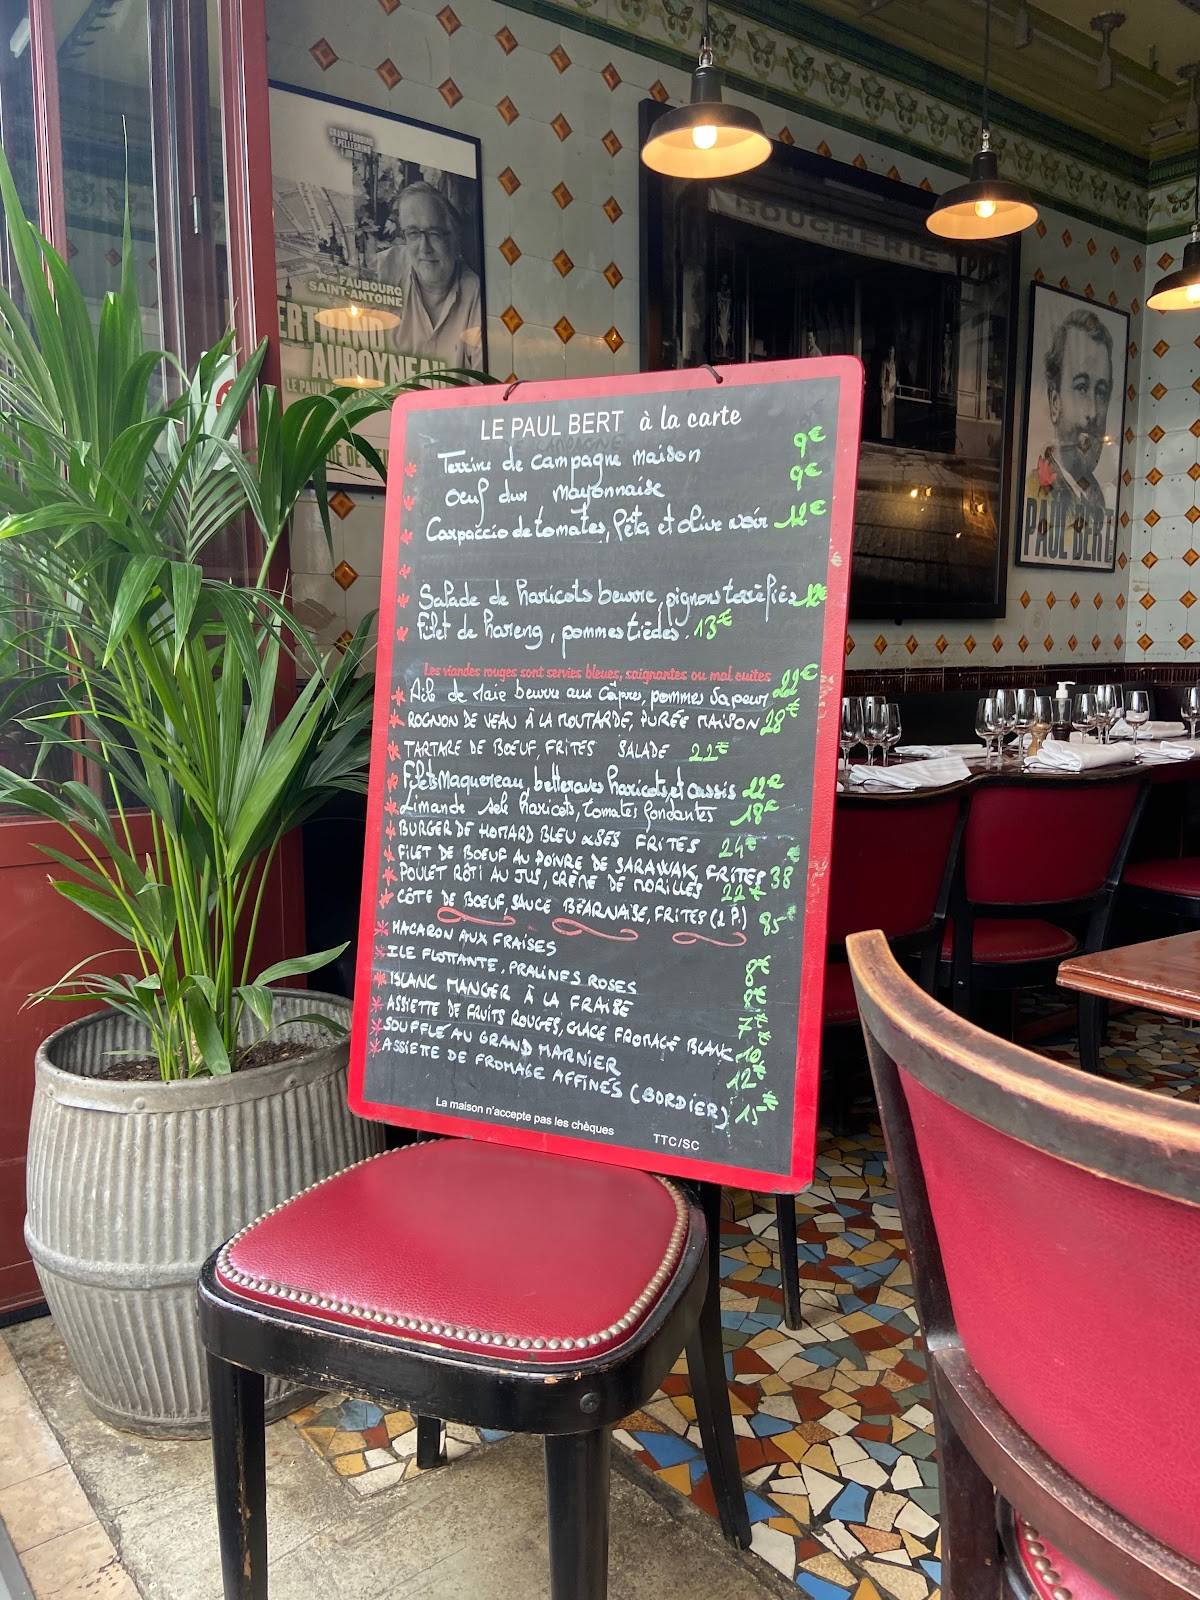 GRAND FOODING
S.PELLEGRINO
FAUBOURG
SAINT-ANTOINE
BERTRAND
AUBOYNEAU
LE PAUL
BOUCHERIE
PAUL BERT
LE PAUL BERT à la carte
Terrine de campagne maison 9€
Oeuf dur mayonnaise 9€
Carpaccio de tomates, fêta et olive noir 12€
Salade de haricots beurre, pignons torréfiés 12€
Filet de hareng, pommes tièdes. 13€
Les viandes rouges sont servies bleues, saignantes ou mal cuites
Aile de raie beurre aux câpres, pommes vapeur 22€
ROGNON DE VEAU À LA MOUTARDE, PURÉE MAISON 28€
TARTARE DE BŒUF, FRITES SALADE 22€
Filets Maquereau, betteraves haricots, et cassis 22€
Limande sole haricots, tomates fondantes 18€
BURGER DE HOMARD BLEU & SES FRITES 24€
FILET DE BOEUF AU POIVRE DE SARAWAK, FRITES 38€
POULET RÔTI AU JUS, CRÈME DE MORILLES 22€
CÔTE DE BŒUF, SAUCE BÉARNAISE, FRITES (2 P.) 85€
MACARON AUX FRAISES 8€
ILE FLOTTANTE, PRALINES ROSES 8€
BLANC MANGER À LA FRAISE 7€
ASSIETTE DE FRUITS ROUGES, GLACE FROMAGE BLANC 10€
SOUFFLÉ AU GRAND MARNIER 12€
ASSIETTE DE FROMAGE AFFINÉS (BORDIER) 15€
La maison n'accepte pas les chèques TTC/SC